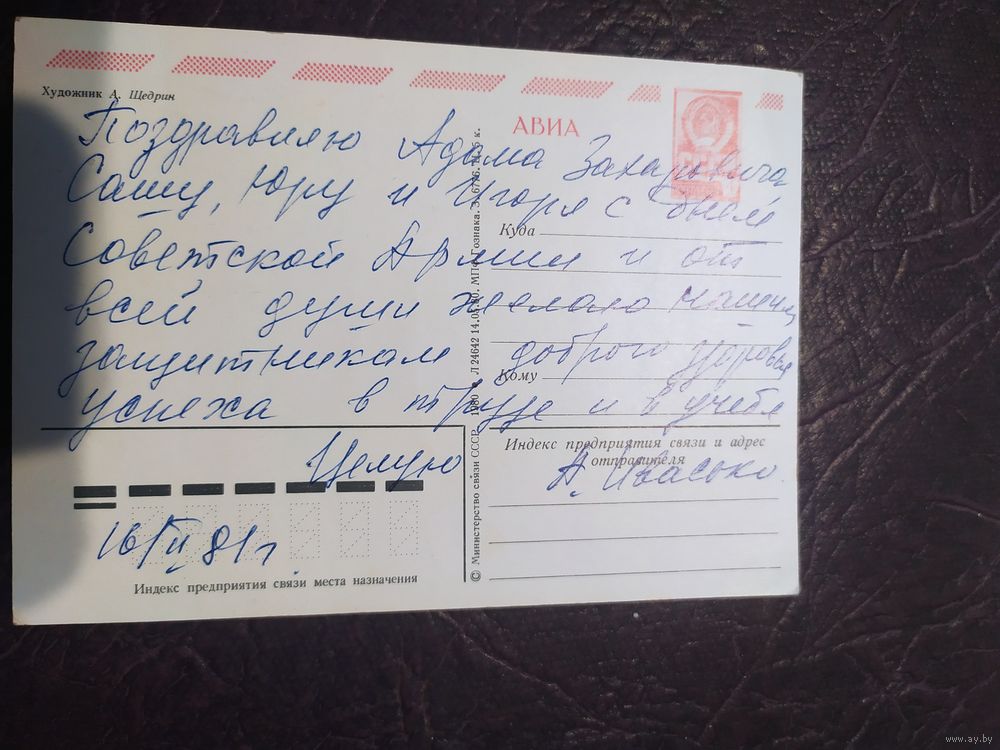 Художник А. Щедрин
АВИА
Поздравляю Адама Захаровича
Сашу, Юру и Игоря с днем
Советской Армии и от
всей души желаю нашим
защитникам доброго здоровья
успеха в труде и в учебе
Целую А. Ивасько
16/II 81 г.
Куда
Кому
Индекс предприятия связи и адрес
отправителя
Индекс предприятия связи места назначения
© Министерство связи СССР. 1980 Л 24642 14.05.80. МПФ Гознака. З. 6776. Ц. 5 к.
www.ay.by